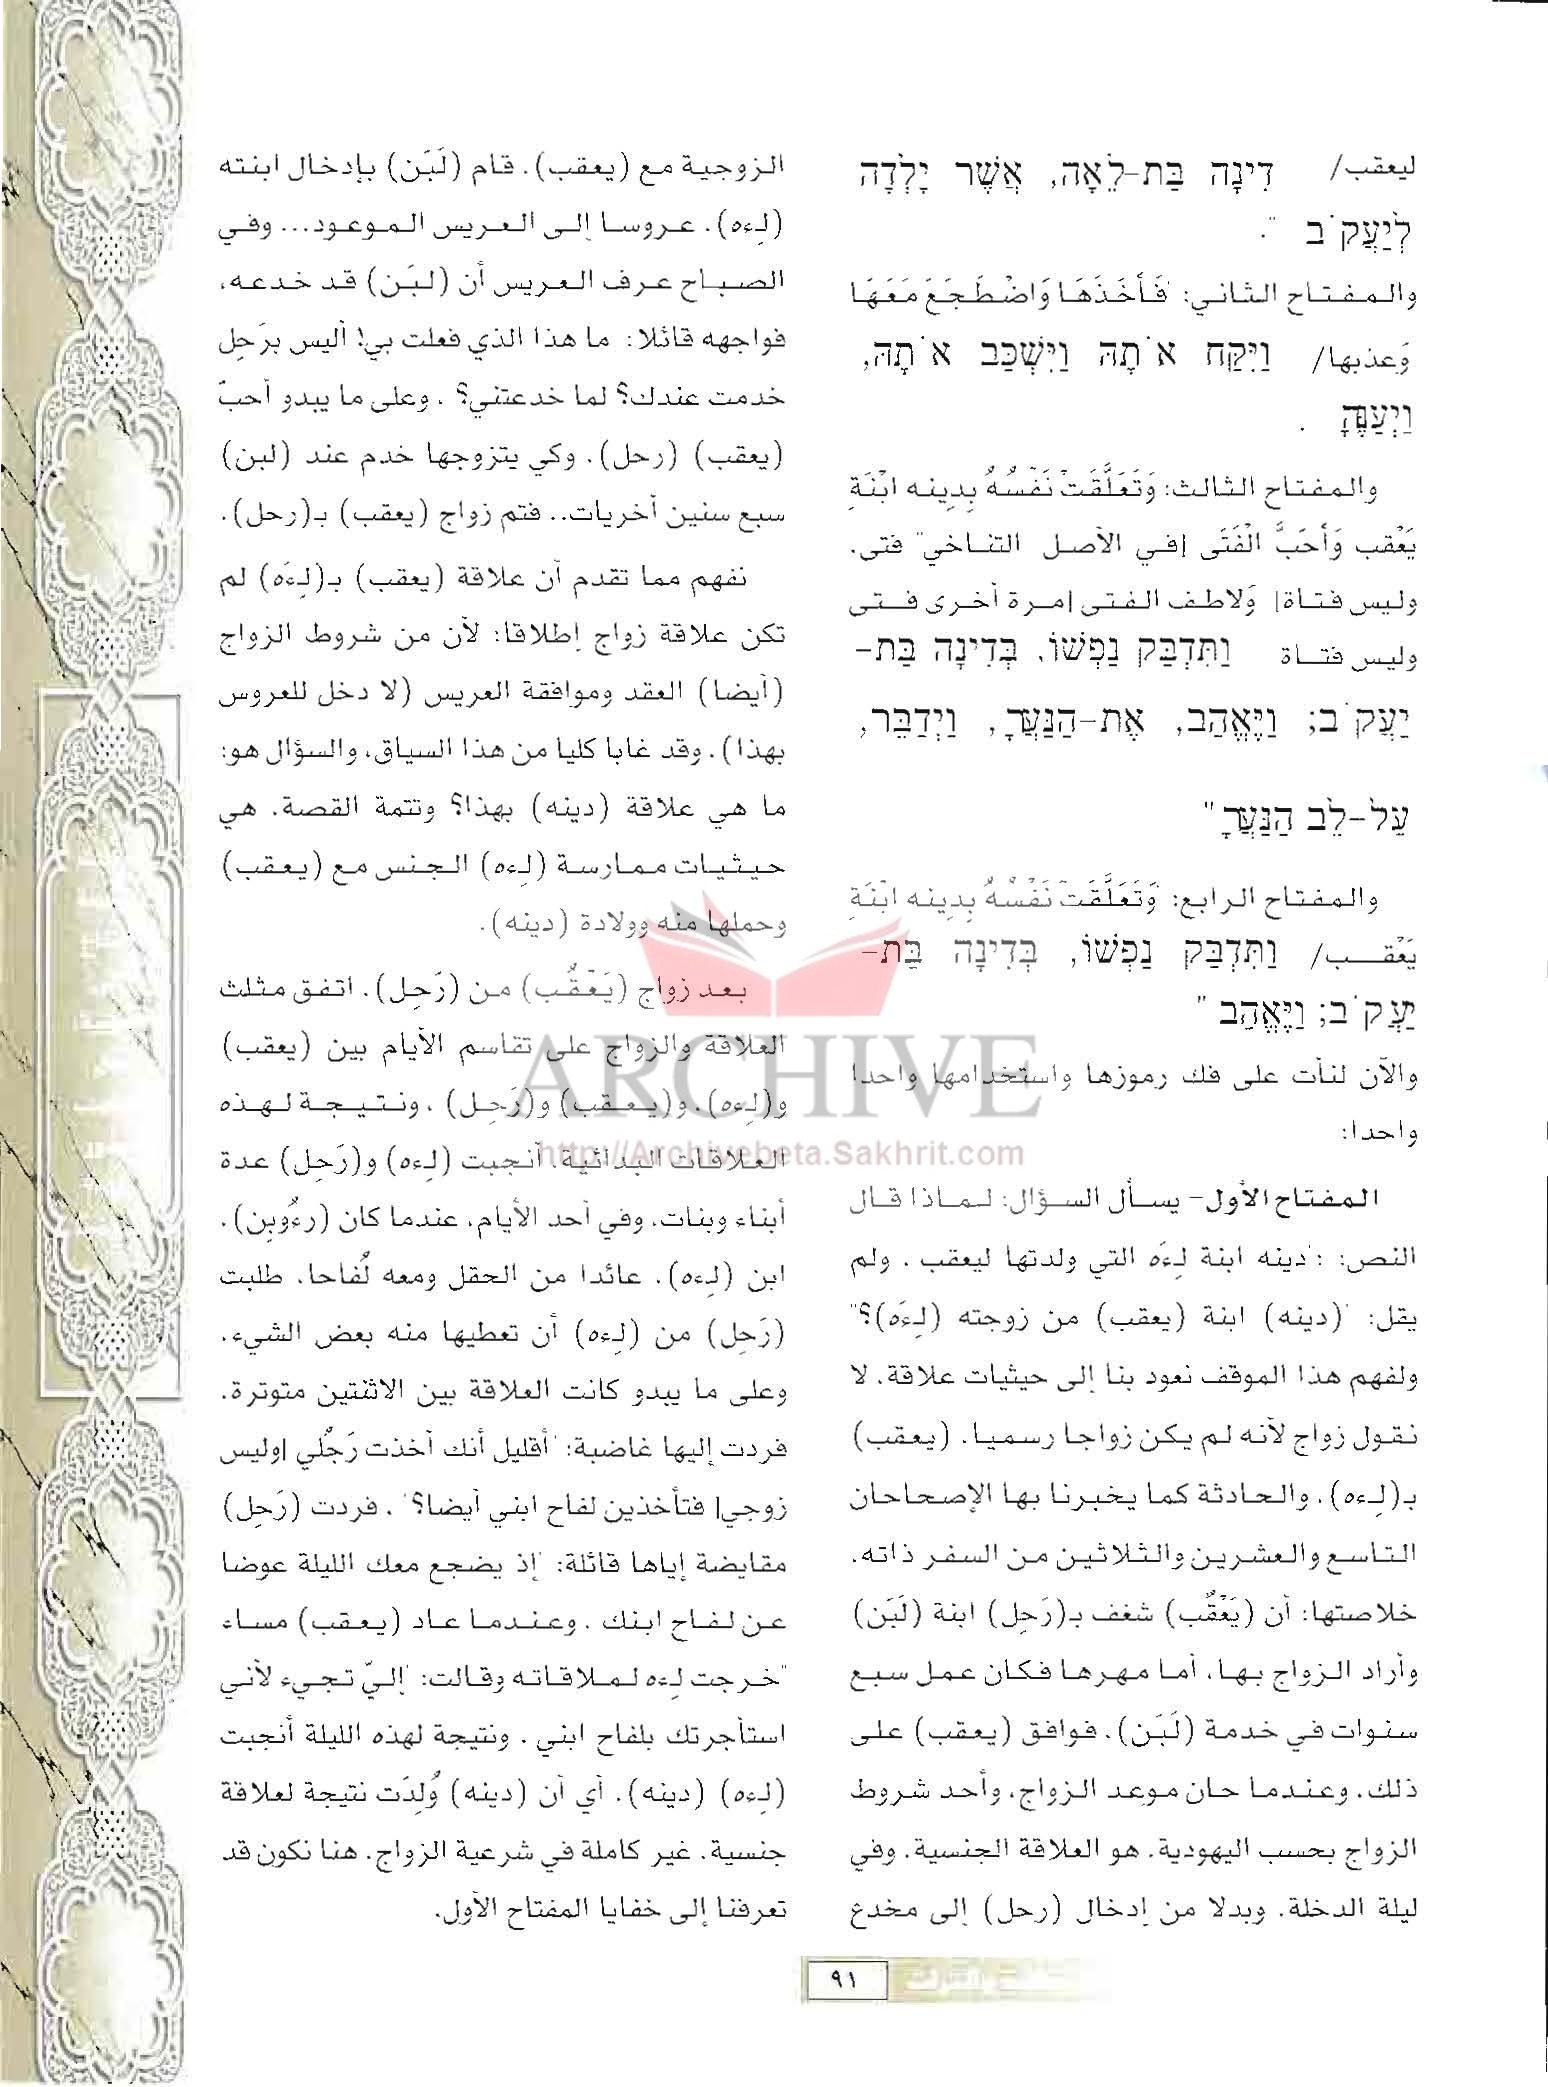 ليعقب/ דִּינָה בַּת-לֵאָה, אֲשֶׁר יָלְדָה
לְיַעֲקֹב ".
والمفتاح الثاني: 'فَأَخَذَهَا وَاضْطَجَعَ مَعَهَا
وَعذبها/ וַיִּקַּח אֹתָהּ וַיִּשְׁכַּב אֹתָהּ,
וַיְעַנֶּהָ .
والمفتاح الثالث: وَتَعَلَّقَتْ نَفْسُهُ بِدِينه ابْنَةِ
يَعْقب وَأَحَبَّ الْفَتَى |في الأصل التناخي" فتى.
وليس فتاة| وَلاطف الفتى |مرة أخرى فتى
وليس فتاة וַתִּדְבַּק נַפְשׁוֹ, בְּדִינָה בַּת-
יַעֲקֹב; וַיֶּאֱהַב, אֶת-הַנַּעֲרָ, וַיְדַבֵּר,
עַל-לֵב הַנַּעֲרָ"
والمفتاح الرابع: 'وَتَعَلَّقَتْ نَفْسُهُ بِدِينه ابْنَةِ
يَعْقب/ וַתִּדְבַּק נַפְשׁוֹ, בְּדִינָה בַּת-
יַעֲקֹב; וַיֶּאֱהַב "
والآن لنأت على فك رموزها واستخدامها واحدا
واحدا:
المفتاح الأول- يسأل السؤال: لماذا قال
النص: :'دينه ابنة لِءَه التي ولدتها ليعقب . ولم
يقل: '(دينه) ابنة (يعقب) من زوجته (لِءَه)؟"
ولفهم هذا الموقف نعود بنا إلى حيثيات علاقة، لا
نقول زواج لأنه لم يكن زواجا رسميا. (يعقب)
بـ(لِءه). والحادثة كما يخبرنا بها الإصحاحان
التاسع والعشرين والثلاثين من السفر ذاته.
خلاصتها: أن (يَعْقُب) شغف بـ(رَحِل) ابنة (لَبَن)
وأراد الزواج بها، أما مهرها فكان عمل سبع
سنوات في خدمة (لَبَن). فوافق (يعقب) على
ذلك. وعندما حان موعد الزواج، وأحد شروط
الزواج بحسب اليهودية. هو العلاقة الجنسية. وفي
ليلة الدخلة. وبدلا من إدخال (رحل) إلى مخدع
الزوجية مع (يعقب). قام (لَبَن) بإدخال ابنته
(لِءه). عروسا إلى العريس الموعود... وفي
الصباح عرف العريس أن (لبَن) قد خدعه،
فواجهه قائلا: ما هذا الذي فعلت بي! أليس برَحِل
خدمت عندك؟ لما خدعتني؟ . وعلى ما يبدو أحبّ
(يعقب) (رحل). وكي يتزوجها خدم عند (لبن)
سبع سنين أخريات.. فتم زواج (يعقب) بـ(رحل).
نفهم مما تقدم أن علاقة (يعقب) بـ(لِءَه) لم
تكن علاقة زواج إطلاقا: لأن من شروط الزواج
(أيضا) العقد وموافقة العريس (لا دخل للعروس
بهذا). وقد غابا كليا من هذا السياق، والسؤال هو:
ما هي علاقة (دينه) بهذا؟ وتتمة القصة. هي
حيثيات ممارسة (لِءه) الجنس مع (يعقب)
وحملها منه وولادة (دينه).
بعد زواج (يَعْقُب) من (رَحِل). اتفق مثلث
العلاقة والزواج على تقاسم الأيام بين (يعقب)
و(لِءه). و(يعقب) و(رَحِل) . ونتيجة لهذه
العلاقات البدائية، أنجبت (لِءه) و(رَحِل) عدة
أبناء وبنات، وفي أحد الأيام، عندما كان (رءُوبِن).
ابن (لِءه). عائدا من الحقل ومعه لُفاحا، طلبت
(رَحِل) من (لِءه) أن تعطيها منه بعض الشيء.
وعلى ما يبدو كانت العلاقة بين الاثنتين متوترة.
فردت إليها غاضبة: 'أقليل أنك أخذت رَجُلي |وليس
زوجي| فتأخذين لفاح ابني أيضا؟' . فردت (رَحِل)
مقايضة إياها قائلة: 'إذ يضجع معك الليلة عوضا
عن لفاح ابنك . وعندما عاد (يعقب) مساء
"خرجت لِءه لملاقاته وقالت: 'إليّ تجيء لأني
استأجرتك بلفاح ابني . ونتيجة لهذه الليلة أنجبت
(لِءه) (دينه). أي أن (دينه) وُلِدَت نتيجة لعلاقة
جنسية. غير كاملة في شرعية الزواج. هنا نكون قد
تعرفنا إلى خفايا المفتاح الأول.
ARCHIVE
http://Archivebeta.Sakhrit.com
٩١